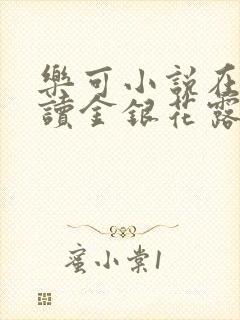 樂可小說在
讀金銀花露
蜜小棠1